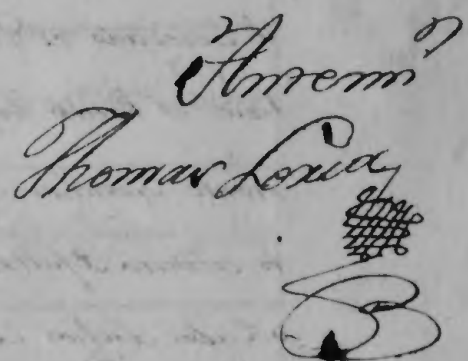 Antemi
Thomas Loria